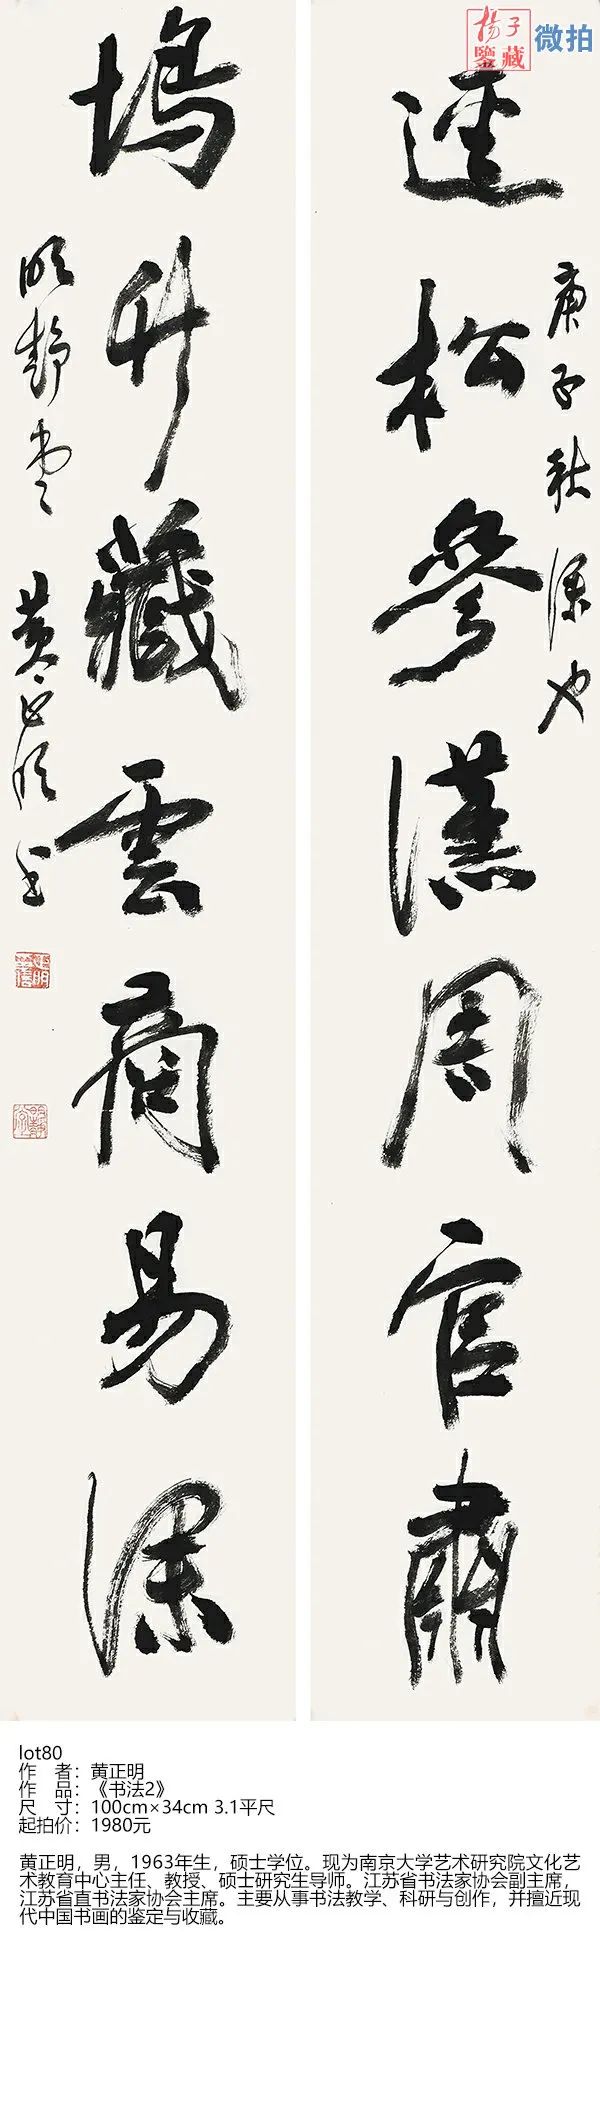 揚子
鑒藏
微拍
庚子秋深也
逕松參漢周官肅
塢竹藏雲商易深
明静 黄正明書
lot80
作 者：黄正明
作 品：《书法2》
尺 寸：100cm×34cm 3.1平尺
起拍价：1980元
黄正明，男，1963年生，硕士学位。现为南京大学艺术研究院文化艺
术教育中心主任、教授、硕士研究生导师。江苏省书法家协会副主席，
江苏省直书法家协会主席。主要从事书法教学、科研与创作，并擅近现
代中国书画的鉴定与收藏。